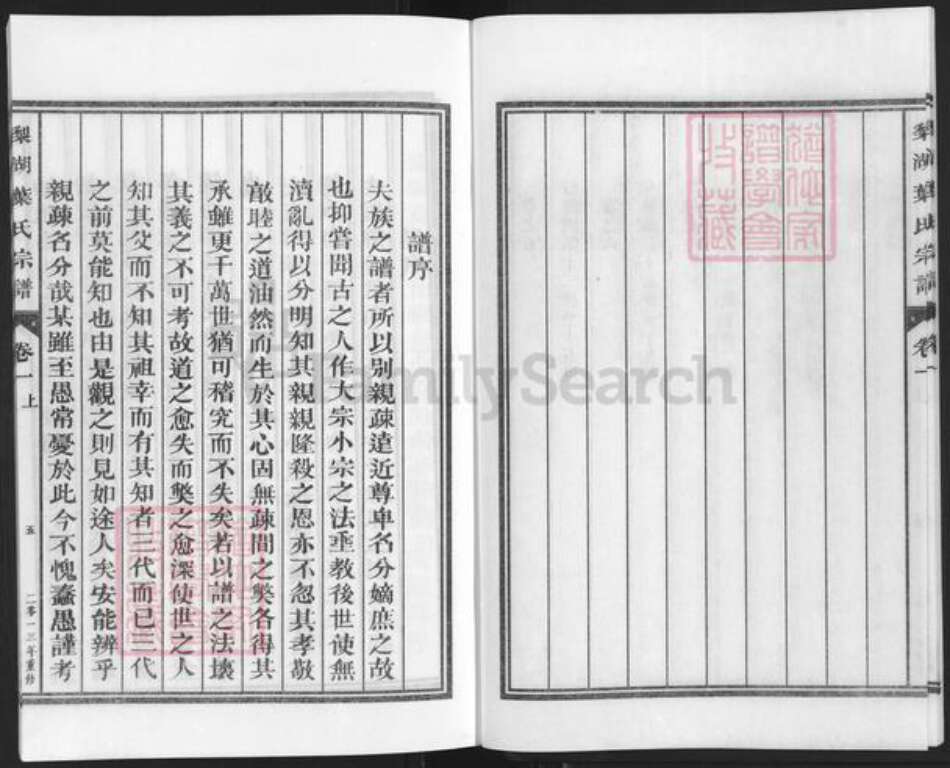 梨湖葉氏宗譜
卷一
譜序
夫族之譜者所以別親疎遠近尊卑名分嫡庶之故
也抑嘗聞古之人作大宗小宗之法垂教後世使無
瀆亂得以分明知其親親隆殺之恩亦不忽其孝敬
敵睦之道油然而生於其心固無疎間之獘各得其
承雖更千萬世猶可稽究而不失矣若以譜之法壞
其義之不可考故道之愈失而獘之愈深使世之人
知其父而不知其祖幸而有其知者三代而已三代
之前莫能知也由是觀之則見如途人矣安能辨乎
親疎名分哉某雖至愚常憂於此今不愧蠢愚謹考
梨湖葉氏宗譜
卷一上
五
二零一三年重修
譜學會
收藏
FamilySearch